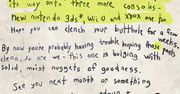 its way onto three more consoles-
new nintendo 3ds*, Wii U and Xbox one for
Hope you can clench your butthole for a few
weeks.
By now you're probably having trouble keeping those pants
clean. So are we- this one is bulging with
solid, moist nuggets of goodness.
See you next month or something